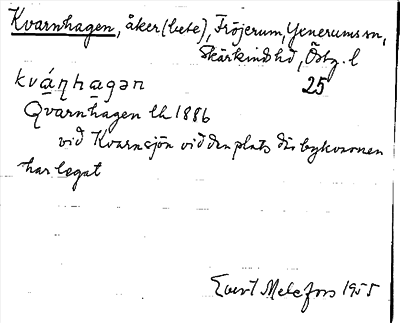 Kvarnhagen, åker (bete), Fröjerum, Yxnerums sn,
Skärkinds hd, Östg. l
kvá̱ɳha̱gən 25
Qvarnhagen lh 1886
vid Kvarnsjön vid den plats där bykvarnen
har legat
Evert Melefors 1955